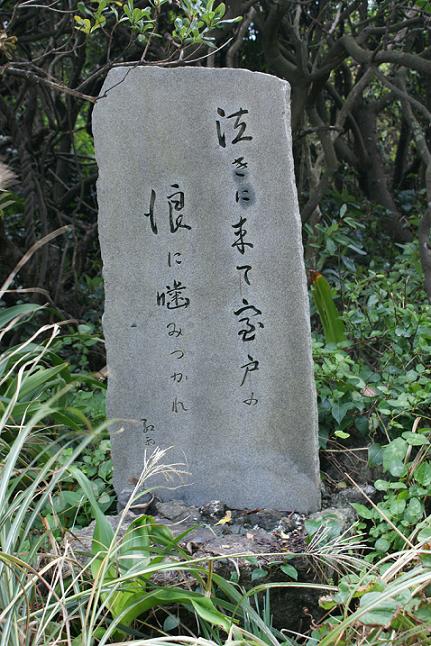 泣きに来て室戸の
浪に噛みつかれ